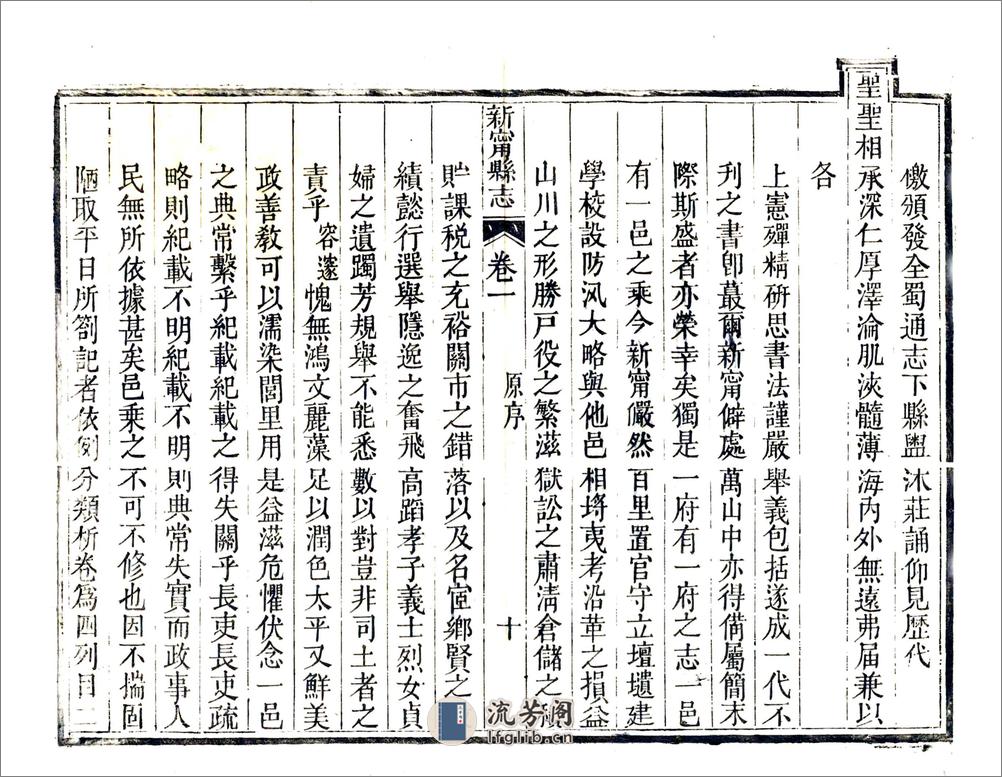 儌頒發全蜀通志下縣盥沐莊誦仰見歷代
聖聖相承深仁厚澤淪肌浹髓薄海內外無遠弗届兼以
各
上憲殫精硏思書法謹嚴舉義包括遂成一代不
刋之書卽蕞爾新甯僻處萬山中亦得備屬簡末
際斯盛者亦榮幸矣獨是一府有一府之志一邑
有一邑之乘今新甯儼然百里置官守立壇壝建
學校設防汛大略與他邑相埒夷考沿革之損益
山川之形勝戸役之繁滋獄訟之肅淸倉儲之
貯課税之充裕關市之錯落以及名宦鄕賢之
績懿行選舉隱逸之奮飛高蹈孝子義士烈女貞
婦之遺躅芳規舉不能悉數以對豈非司土者之
責乎容邃愧無鴻文麗藻足以潤色太平又鮮美
政善教可以濡染閭里用是益滋危懼伏念一邑
之典常繫乎紀載紀載之得失關乎長吏長吏疏
略則紀載不明紀載不明則典常失實而政事人
民無所依據甚矣邑乘之不可不修也因不揣固
陋取平日所劄記者依例分類析卷爲四列目二
新甯縣志
卷一
原序
十
流芳阁
lfglib.cn